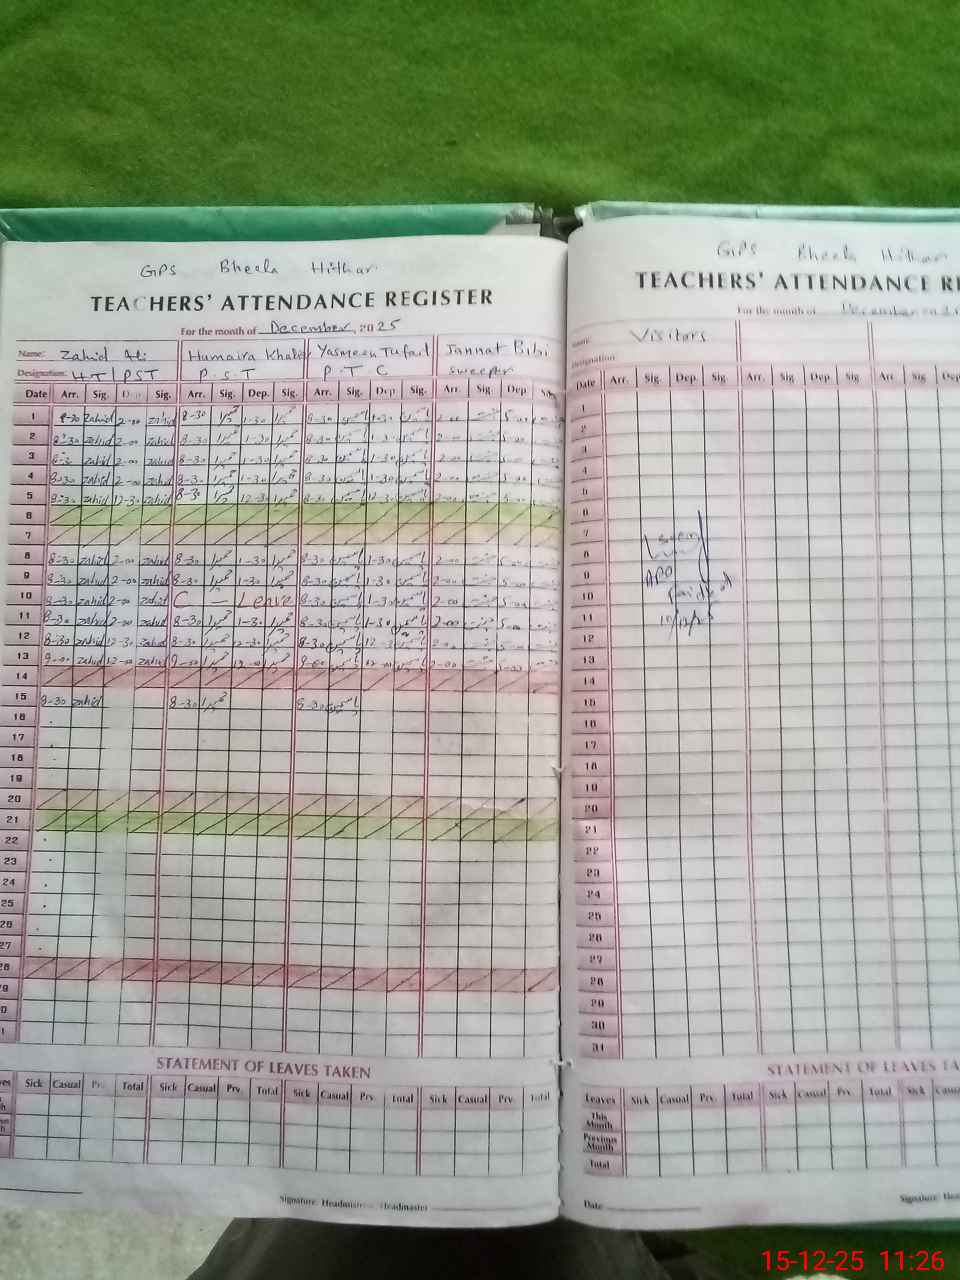 GPS Bheela Hithar
TEACHERS' ATTENDANCE REGISTER
For the month of December, 2025
Name: Zahid Ali Humaira Khalid Yasmeen Tufail Jannat Bibi
Designation: HT/PST P.S.T P.T.C sweeper
Date Arr. Sig. Dep Sig. Arr. Sig. Dep. Sig. Arr. Sig. Dep Sig. Arr. Sig. Dep Sig.
1 8-30 zahid 2-00 zahid 8-30 1-30 8-30 1-30 2-00 5-00
2 8-30 zahid 2-00 zahid 8-30 1-30 8-30 1-30 2-00 5-00
3 8-30 zahid 2-00 zahid 8-30 1-30 8-30 1-30 2-00 5-00
4 8-30 zahid 2-00 zahid 8-30 1-30 8-30 1-30 2-00 5-00
5 8-30 zahid 12-30 zahid 8-30 12-30 8-30 12-30 2-00 5-00
6
7
8 8-30 zahid 2-00 zahid 8-30 1-30 8-30 1-30 2-00 5-00
9 8-30 zahid 2-00 zahid 8-30 1-30 8-30 1-30 2-00 5-00
10 8-30 zahid 2-00 zahid C - Leave 8-30 1-30 2-00 5-00
11 8-30 zahid 2-00 zahid 8-30 1-30 8-30 1-30 2-00 5-00
12 8-30 zahid 12-30 zahid 8-30 12-30 8-30 12-30 2-00 5-00
13 9-00 zahid 12-00 zahid 9-00 12-00 9-00 12-00 2-00 5-00
14
15 8-30 zahid 8-30 8-30
16
17
18
19
20
21
22
23
24
25
26
27
28
29
STATEMENT OF LEAVES TAKEN
Sick Casual Prv. Total Sick Casual Prv. Total Sick Casual Prv. Total Sick Casual Prv. Total
Signature: Headmistress/Headmaster
GPS Bheela Hithar
TEACHERS' ATTENDANCE RE
For the month of December 202
Name: Visitors
Designation
Date Arr. Sig. Dep. Sig Arr. Sig Dep Sig Arr Sig Dep
1
2
3
4
5
6
7
8
9 APO
10
11 10/12/25
12
13
14
15
16
17
18
19
20
21
22
23
24
25
26
27
28
29
30
31
STATEMENT OF LEAVES TA
Leaves Sick Casual Prv. Total Sick Casual Prv. Total Sick Casual
This Month
Previous Month
Total
Date
Signature: Hea
15-12-25 11:26